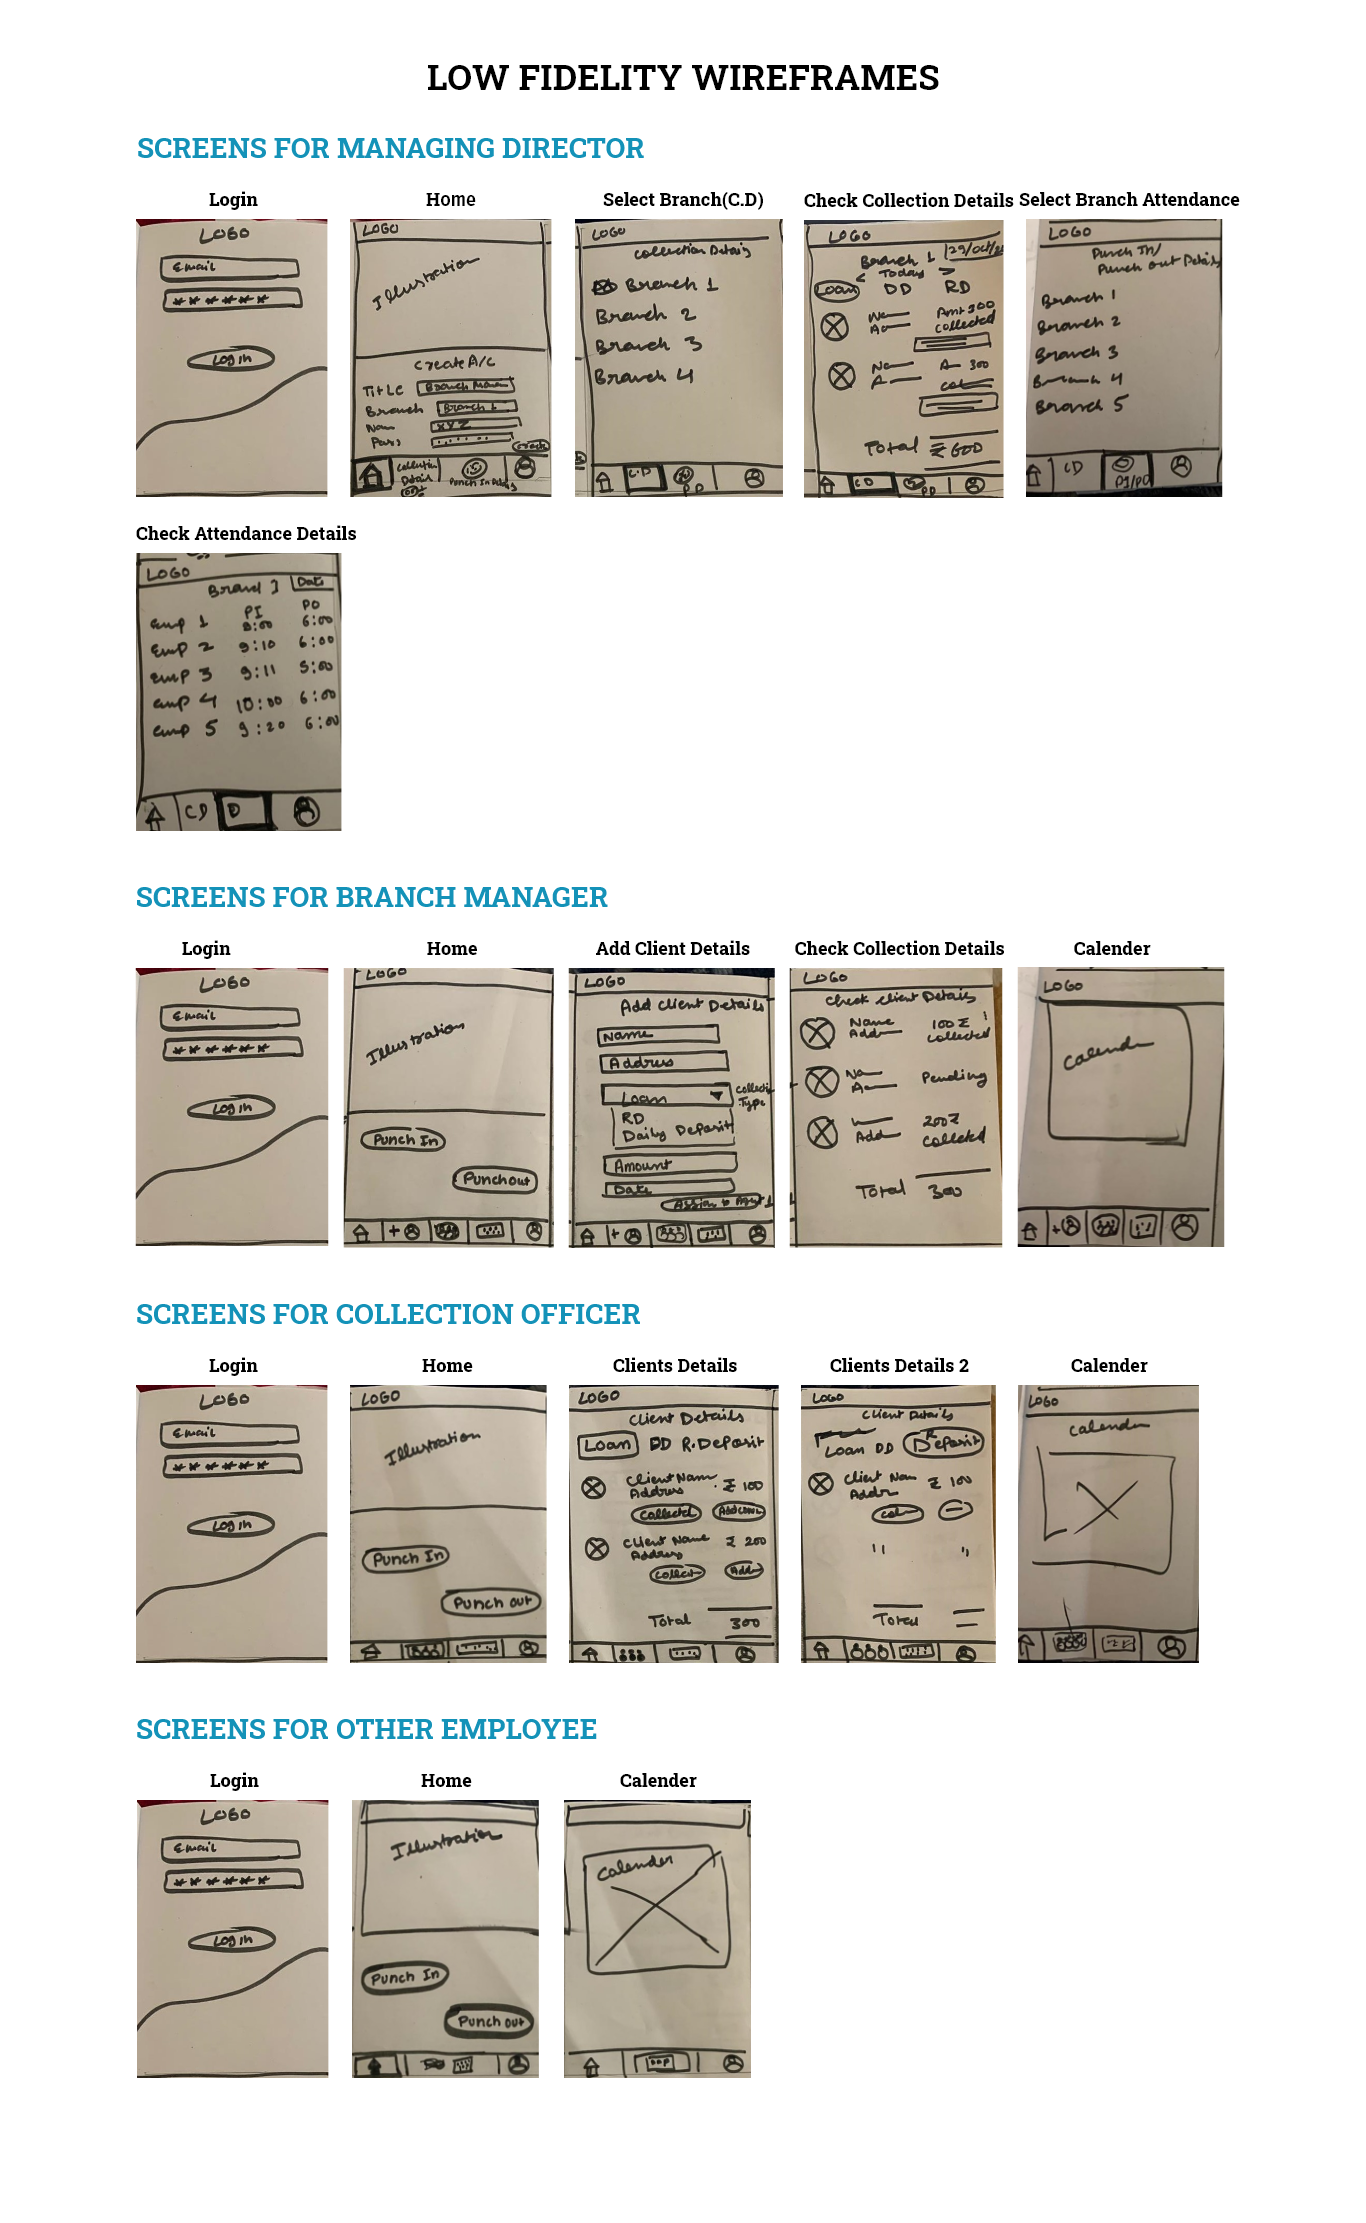 LOW FIDELITY WIREFRAMES
SCREENS FOR MANAGING DIRECTOR
Login
LOGO
Email
******
Log in
Home
LOGO
Illustration
Create A/C
Title Branch
Branch Branch 1
XYZ
Pass
Create
Collection Details
Punch In Details
Select Branch(C.D)
LOGO
Collection Details
Branch 1
Branch 2
Branch 3
Branch 4
C.D
Check Collection Details
LOGO
Branch 1
< Today >
Loan DD RD
Amt 300
Collected
300
Total ₹ 600
CD
Select Branch Attendance
LOGO
Punch In/
Punch out Details
Branch 1
Branch 2
Branch 3
4
Branch 5
CD
PI/PO
Check Attendance Details
LOGO
Date
PI PO
Emp 1 6:00
Emp 2 9:10 6:00
Emp 3 9:11 5:00
Emp 4 10:00 6:00
Emp 5 9:20 6:00
CD D
SCREENS FOR BRANCH MANAGER
Login
LOGO
Email
******
Log in
Home
LOGO
Illustration
Punch In
Punch out
Add Client Details
LOGO
Add Client Details
Name
Address
Loan
Type
RD
Daily Deposit
Amount
Date
Assign to
Check Collection Details
LOGO
Check Client Details
Name 100 ₹
Add collected
Pending
200 ₹
Add collected
Total 300
Calender
LOGO
Calender
SCREENS FOR COLLECTION OFFICER
Login
LOGO
Email
******
Log in
Home
LOGO
Illustration
Punch In
Punch out
Clients Details
LOGO
Client Details
Loan DD R.Deposit
Client Name
Address ₹ 100
Collected
Client Name ₹ 200
Address
Collect Add
Total 300
Clients Details 2
LOGO
Client Details
Loan DD R Deposit
Client Nam ₹ 100
Addr
" "
Total
Calender
LOGO
Calender
SCREENS FOR OTHER EMPLOYEE
Login
LOGO
Email
******
Log in
Home
Illustration
Punch In
Punch out
Calender
Calender